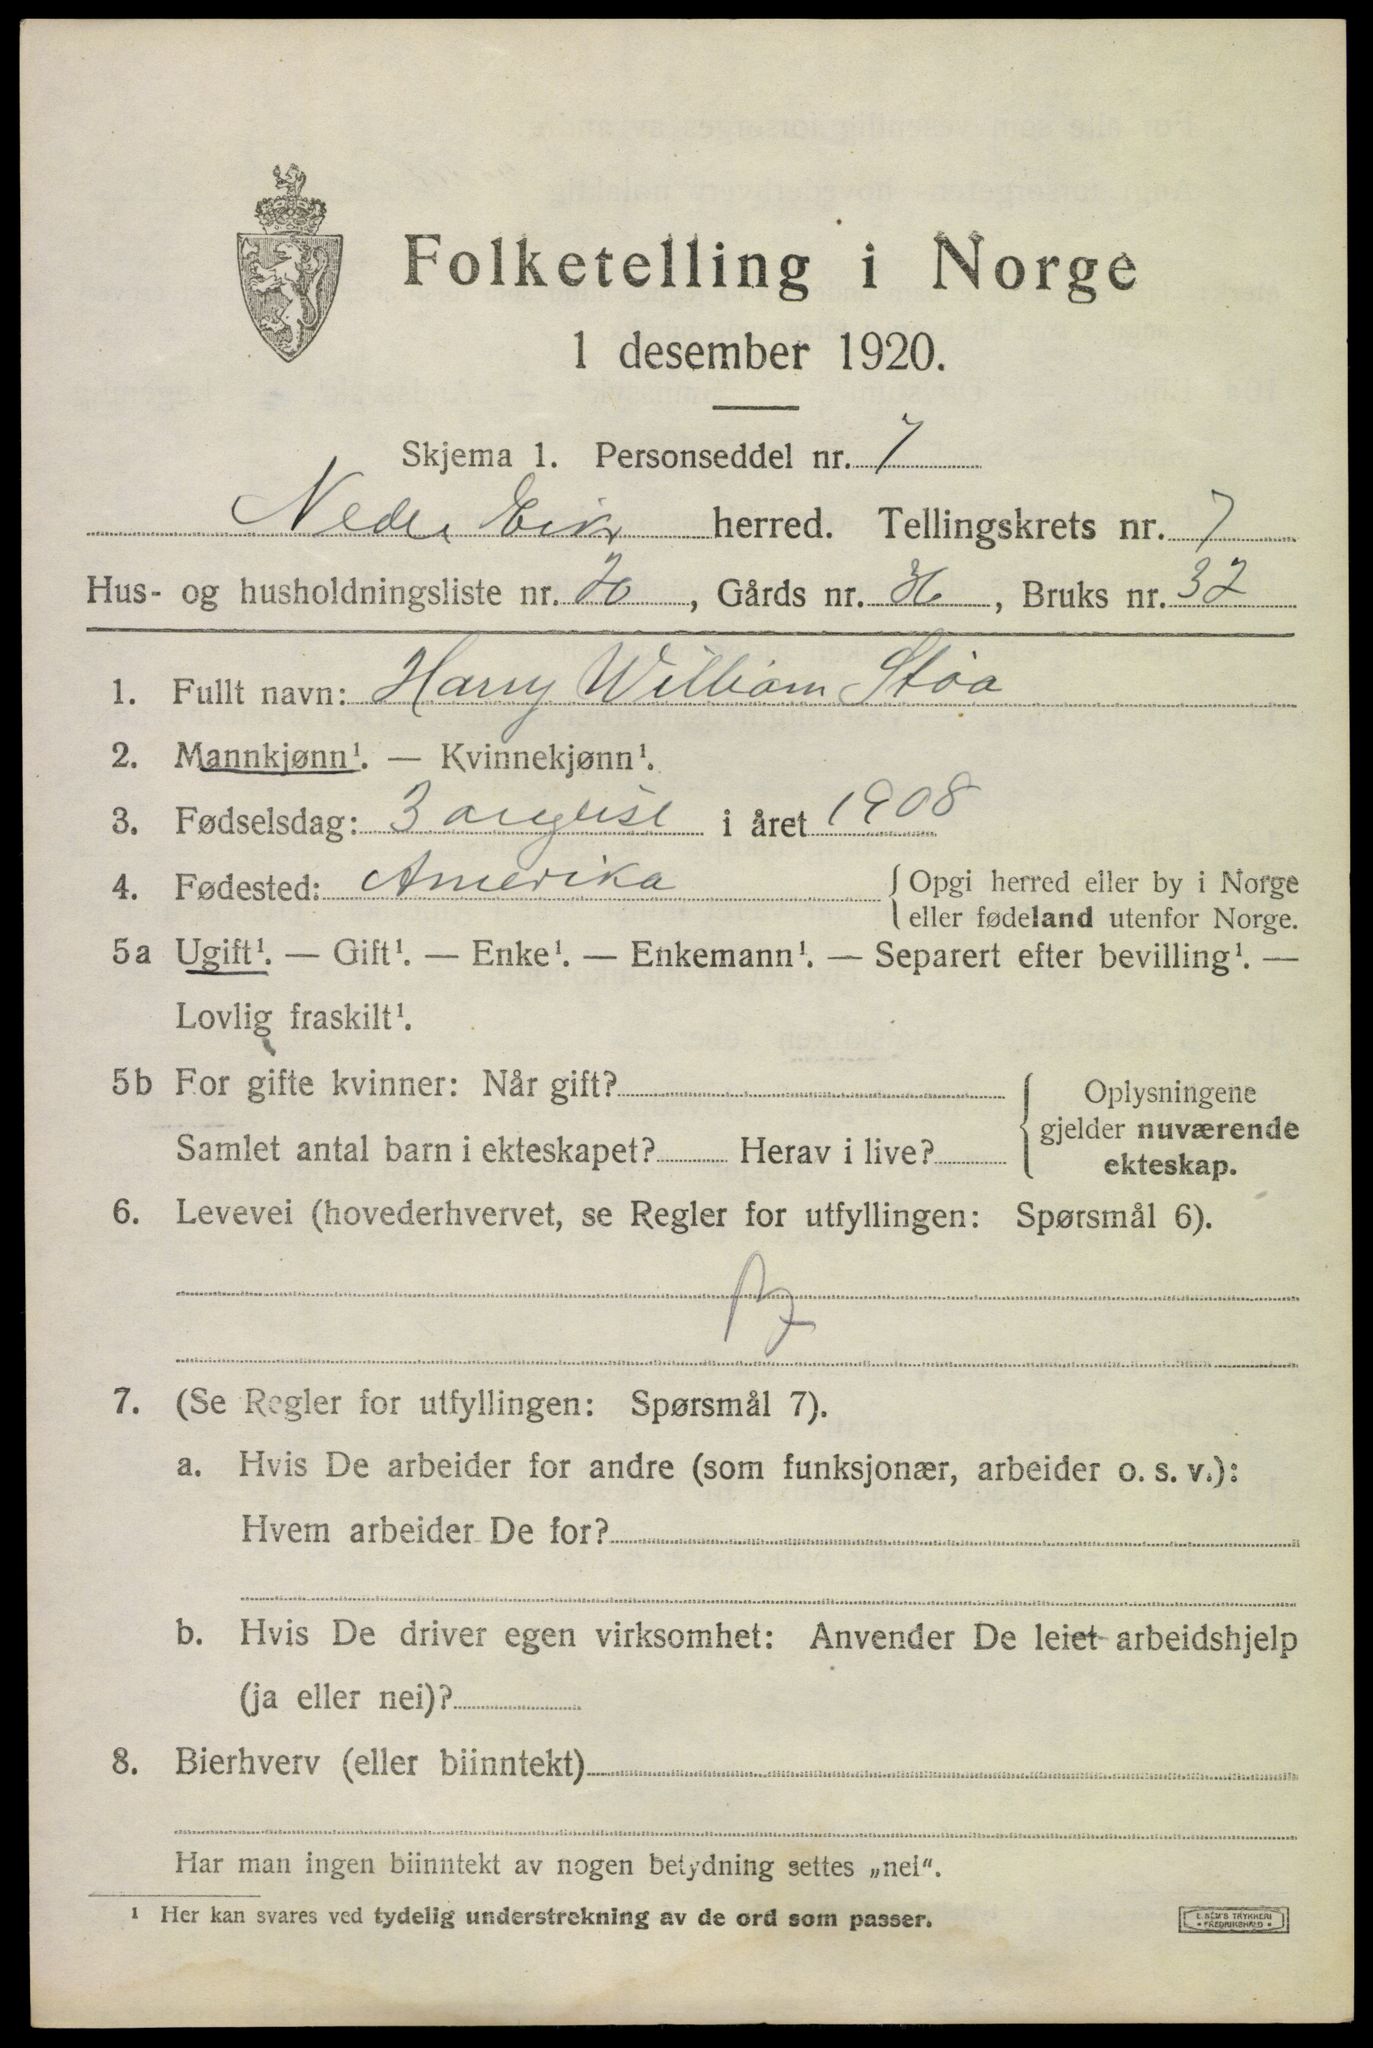 Folketelling i Norge
1 desember 1920.
Skjema 1. Personseddel nr. 7
Nedre Eiker herred. Tellingskrets nr. 7
Hus- og husholdningsliste nr. 20, Gårds nr. 36, Bruks nr. 32
1. Fullt navn: Harry William Støa
2. Mannkjønn¹. — Kvinnekjønn¹.
3. Fødselsdag: 3 august i året 1908
4. Fødested: Amerika {Opgi herred eller by i Norge
eller fødeland utenfor Norge.
5a Ugift¹. — Gift¹. — Enke¹. — Enkemann¹. — Separert efter bevilling¹. —
Lovlig fraskilt¹.
5b For gifte kvinner: Når gift?
Samlet antal barn i ekteskapet? Herav i live?
{Oplysningene
gjelder nuværende
ekteskap.
6. Levevei (hovederhvervet, se Regler for utfyllingen: Spørsmål 6).
7. (Se Regler for utfyllingen: Spørsmål 7).
a. Hvis De arbeider for andre (som funksjonær, arbeider o. s. v.):
Hvem arbeider De for?
b. Hvis De driver egen virksomhet: Anvender De leiet arbeidshjelp
(ja eller nei)?
8. Bierhverv (eller biinntekt)
Har man ingen biinntekt av nogen betydning settes „nei".
¹ Her kan svares ved tydelig understrekning av de ord som passer.
E. SEM'S TRYKKERI
FREDRIKSHALD